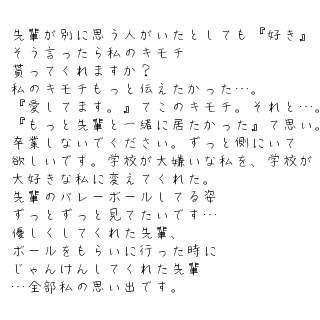 先輩が別に思う人がいたとしても『好き』
そう言ったら私のキモチ
貰ってくれますか？
私のキモチもっと伝えたかった…。
『愛してます。』てこのキモチ。それと…。
『もっと先輩と一緒に居たかった』て思い。
卒業しないでください。ずっと側にいて
欲しいです。学校が大嫌いな私を、学校が
大好きな私に変えてくれた。
先輩のバレーボールしてる姿
ずっとずっと見てたいです…
優しくしてくれた先輩、
ボールをもらいに行った時に
じゃんけんしてくれた先輩
…全部私の思い出です。